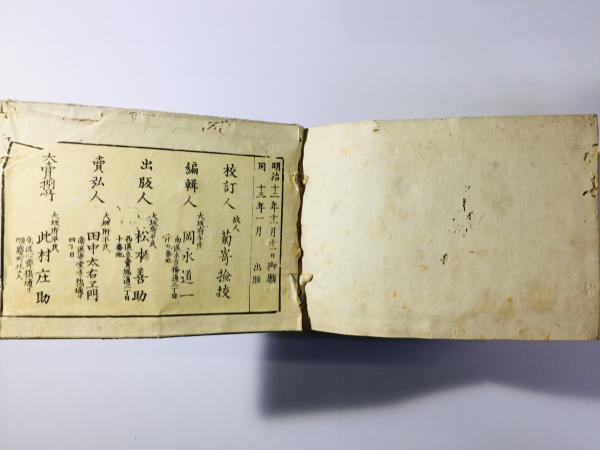 明治十二年十一月十二日御願
同 十三年一月 出版
校訂人 故人 菊嵜撿挍
編輯人 大坂府平民 岡永道一
出版人 大坂府平民 松本善助
西區
十番地
賣弘人 大坂府平民 田中太右ヱ門
南區
四丁目
大賣捌所 大坂府平民 此村庄助